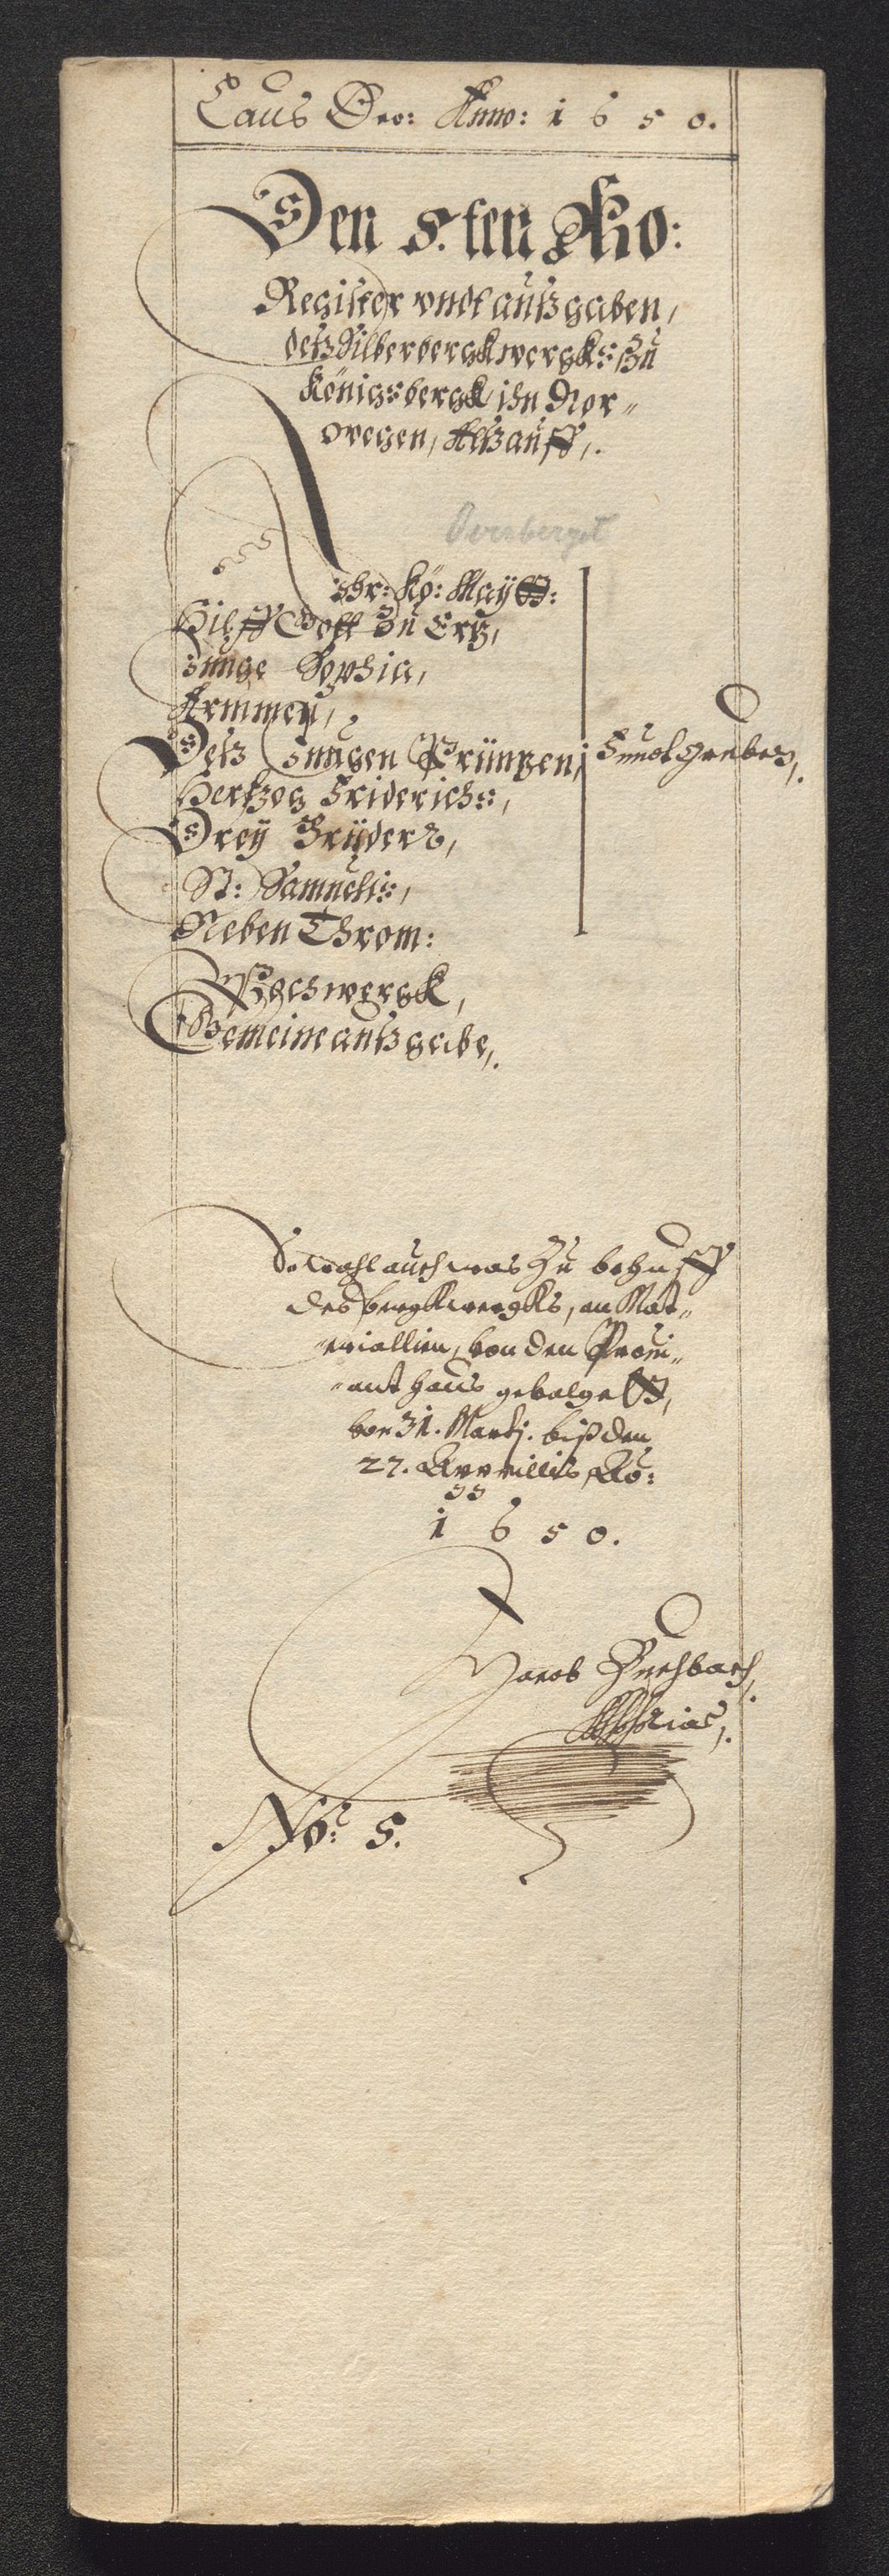 Laus Deo: Anno: 1650.
Den 5.ten Mo:
Register vndt außgaben,
deß Silberbergkwergks Zu
Königsbergk, ihn Nor„
wegen, Alß auff,.
Overberget
Ihr: Kö: Maÿtt:
Hilff Gott Zu Ertz,
Junge Sophia,
Armmen,
Deß Jungen Printzen, Fundtgruben,.
Hertzog Friderichs,
Dreÿ Brüder,
St: Samuelis,
Neben Throm:
Pochwergk,
Gemeine außgabe,.
Sowohl auch was Zu behuff
des bergkwergks, an Mat„
„eriallien, von den Provi„
„ant haus gevolget,
von 31. Martj. biß den
27. Apprillis Ao:
1650.
Jacob
No: 5.